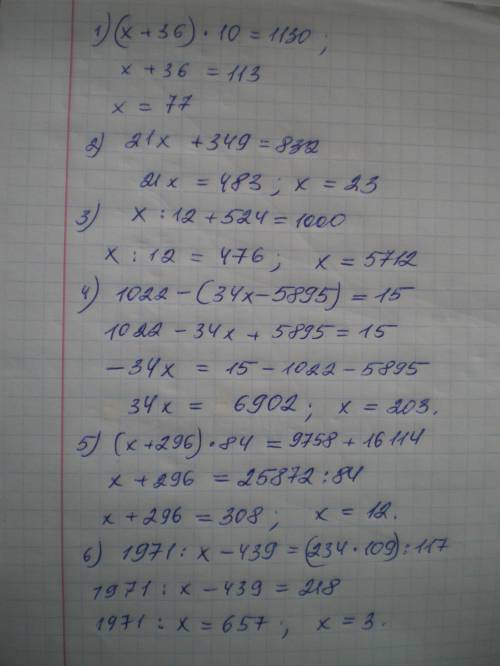 1) (x + 36) · 10 = 1130 ;
x + 36 = 113
x = 77
2) 21x + 349 = 832
21x = 483 ; x = 23
3) x : 12 + 524 = 1000
x : 12 = 476 ; x = 5712
4) 1022 - (34x - 5895) = 15
1022 - 34x + 5895 = 15
-34x = 15 - 1022 - 5895
34x = 6902 ; x = 203.
5) (x + 296) · 84 = 9758 + 16114
x + 296 = 25872 : 84
x + 296 = 308 ; x = 12.
6) 1971 : x - 439 = (234 · 109) : 117
1971 : x - 439 = 218
1971 : x = 657 ; x = 3.